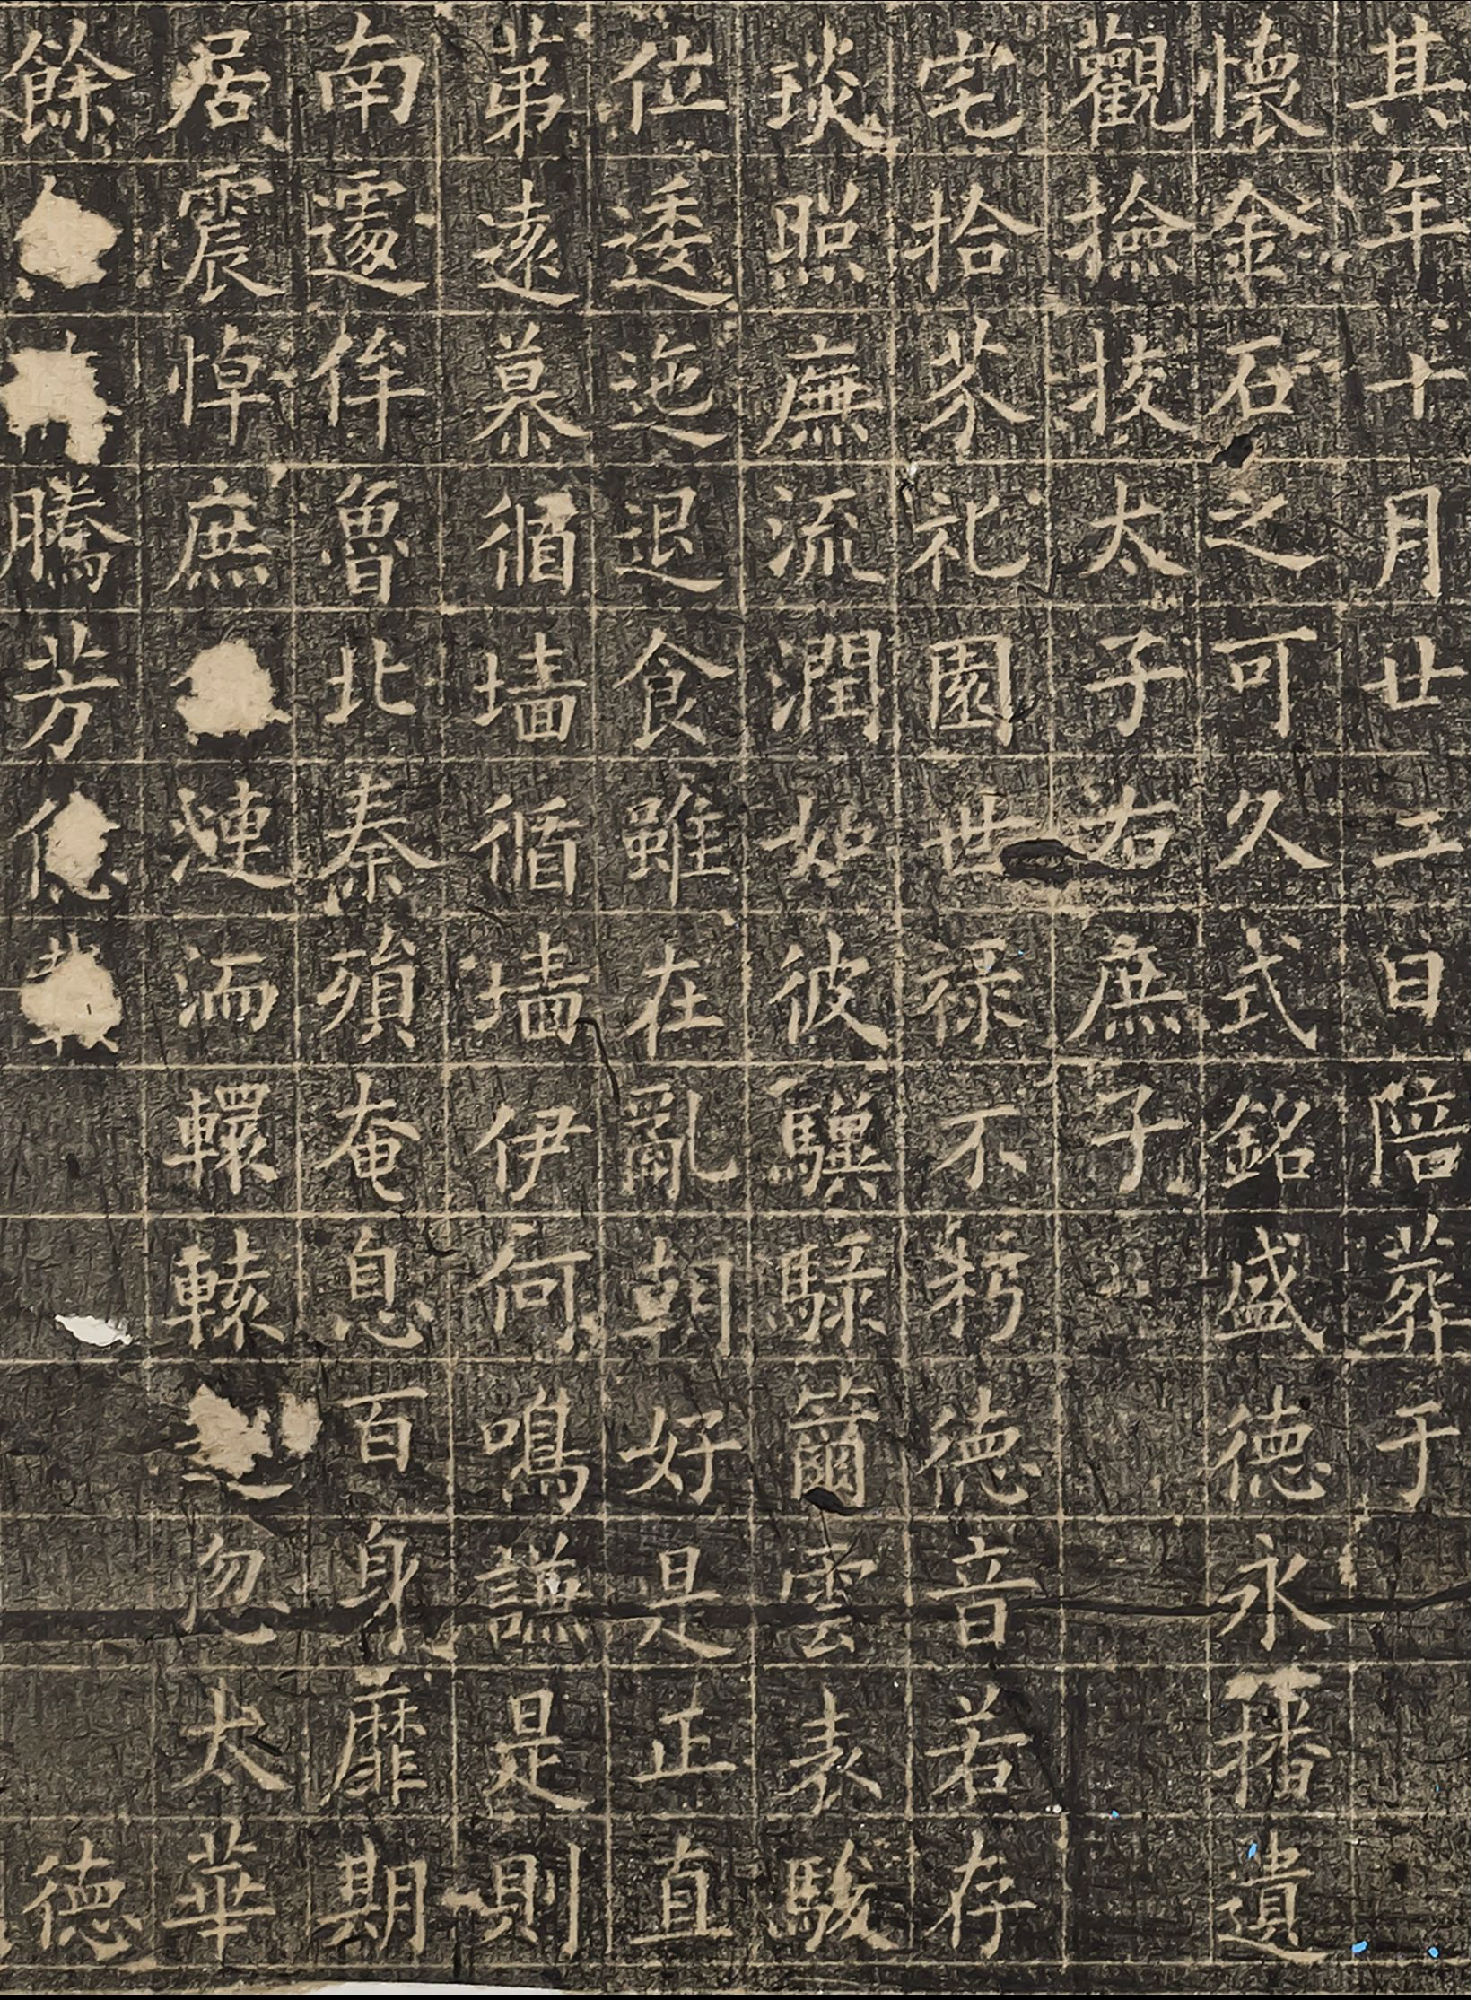 其年十月廿二日陪葬于
懷金石之可久式銘盛德永播遺
觀撿挍太子右庶子
宅拾芥礼園世祿不朽德音若存
琰照廡流潤始彼驥騄籋雲表駿
位逶迤退食雖在亂朝好是正直
苐遠慕循墻循墻伊何鳴謙是則
南侔魯北秦殞奄息百身靡期
居震悼庶漣洏轘轅忽太華
餘騰芳德